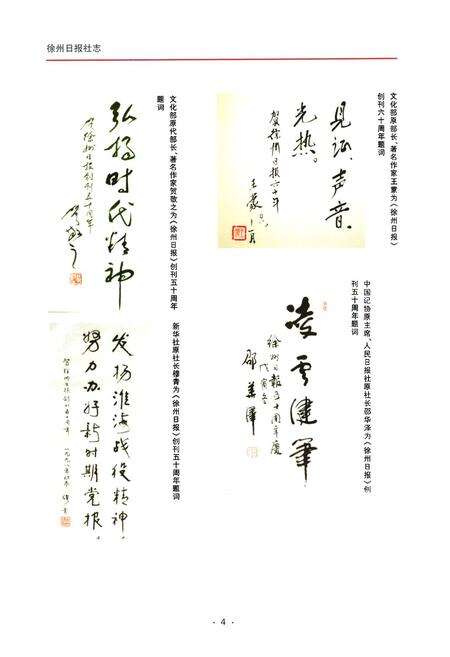 徐州日报社志
文化部原部长、著名作家王蒙为《徐州日报》
创刊六十周年题词
见证，声音，
光热。
贺徐州日报六十年
王蒙
中国记协原主席、人民日报社原社长邵华泽为《徐州日报》创
刊五十周年题词
凌云健笔
徐州日报五十周年庆
戊寅冬
邵华泽
文化部原代部长、著名作家贺敬之为《徐州日报》创刊五十周年
题词
弘扬时代精神
贺徐州日报创刊五十周年
贺敬之
新华社原社长穆青为《徐州日报》创刊五十周年题词
发扬淮海战役精神，
努力办好新时期党报。
贺徐州日报创刊五十周年
穆青
· 4 ·